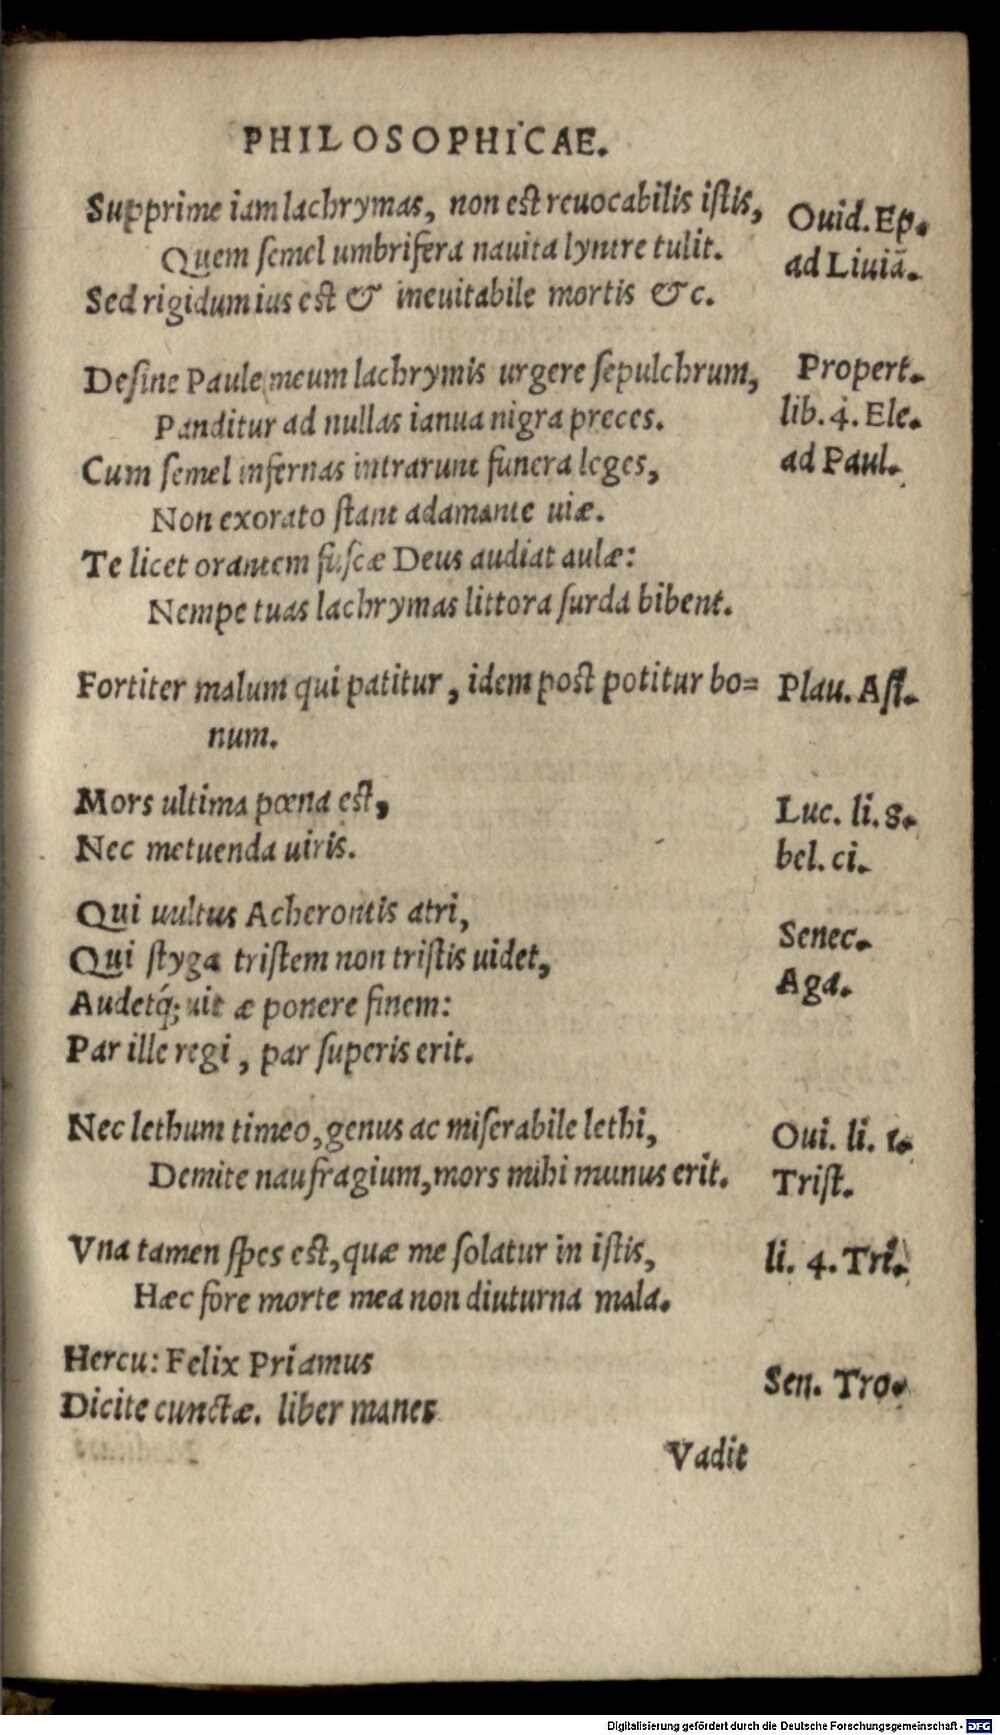 PHILOSOPHICAE.
Supprime iam lachrymas, non est reuocabilis istis,
Quem semel umbrifera nauita lyntre tulit.
Sed rigidum ius est & ineuitabile mortis &c.
Ouid. Ep.
ad Liuiã.
Desine Paule meum lachrymis urgere sepulchrum,
Panditur ad nullas ianua nigra preces.
Cum semel infernas intrarunt funera leges,
Non exorato stant adamante uiæ.
Te licet orantem fuscæ Deus audiat aulæ:
Nempe tuas lachrymas littora surda bibent.
Propert.
lib. 4. Ele.
ad Paul.
Fortiter malum qui patitur, idem post potitur bo=
num.
Plau. Asi.
Mors ultima pœna est,
Nec metuenda uiris.
Luc. li. 8.
bel. ci.
Qui uultus Acherontis atri,
Qui styga tristem non tristis uidet,
Audetq́; uit æ ponere finem:
Par ille regi, par superis erit.
Senec.
Aga.
Nec lethum timeo, genus ac miserabile lethi,
Demite naufragium, mors mihi munus erit.
Oui. li. 1.
Trist.
Vna tamen spes est, quæ me solatur in istis,
Hæc fore morte mea non diuturna mala.
li. 4. Tri.
Hercu: Felix Priamus
Dicite cunctæ. liber manes
Sen. Tro.
Vadit
Digitalisierung gefördert durch die Deutsche Forschungsgemeinschaft - DFG